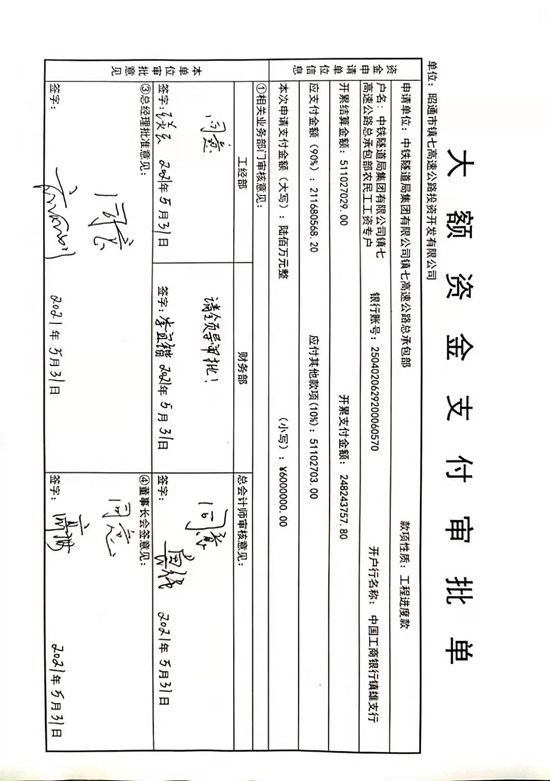 大额资金支付审批单
单位：昭通市镇七高速公路投资开发有限公司
资金申请单位信息
申请单位：中铁隧道局集团有限公司镇七高速公路总承包部
款项性质：工程进度款
户名：中铁隧道局集团有限公司镇七
高速公路总承包部农民工工资专户
银行账号：2504020629200060570
开户行名称：中国工商银行镇雄支行
开累结算金额：511027029.00
开累支付金额：248243757.80
应支付金额（90%）：211680568.20
应付其他款项(10%)：51102703.00
本次申请支付金额（大写）：陆佰万元整
（小写）：¥6000000.00
本单位审批意见
①相关业务部门审核意见：
工经部
财务部
总会计师审核意见：
同意
请领导审批！
同意
签字：
2021年5月31日
签字：
2021年5月31日
签字：
2021年5月31日
③总经理批准意见：
④董事长会签意见：
同意
同意
签字：
2021年5月31日
签字：
2021年5月31日